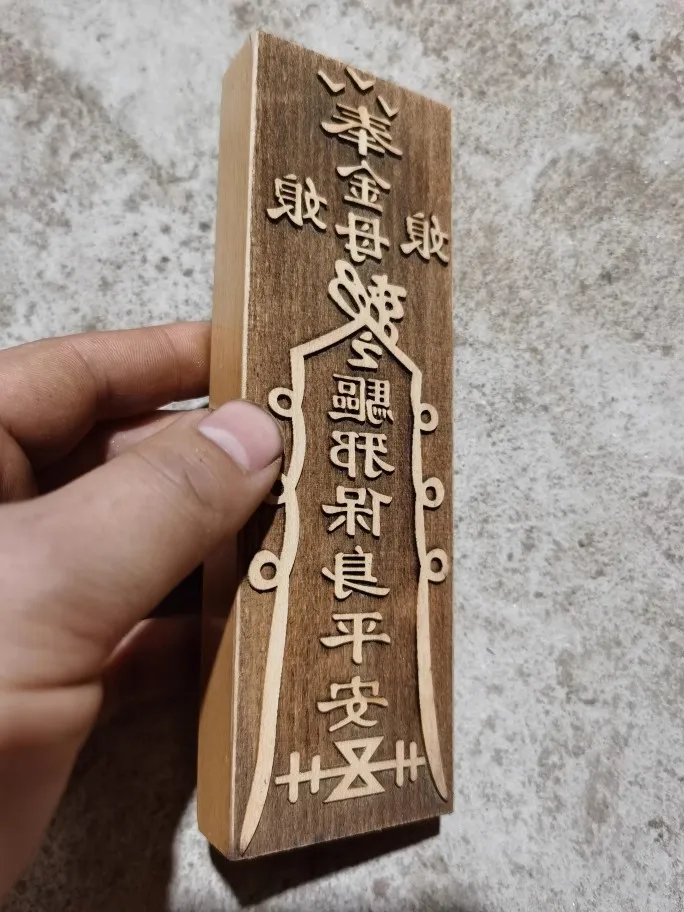 奉金母
娘娘
驅邪保身平安